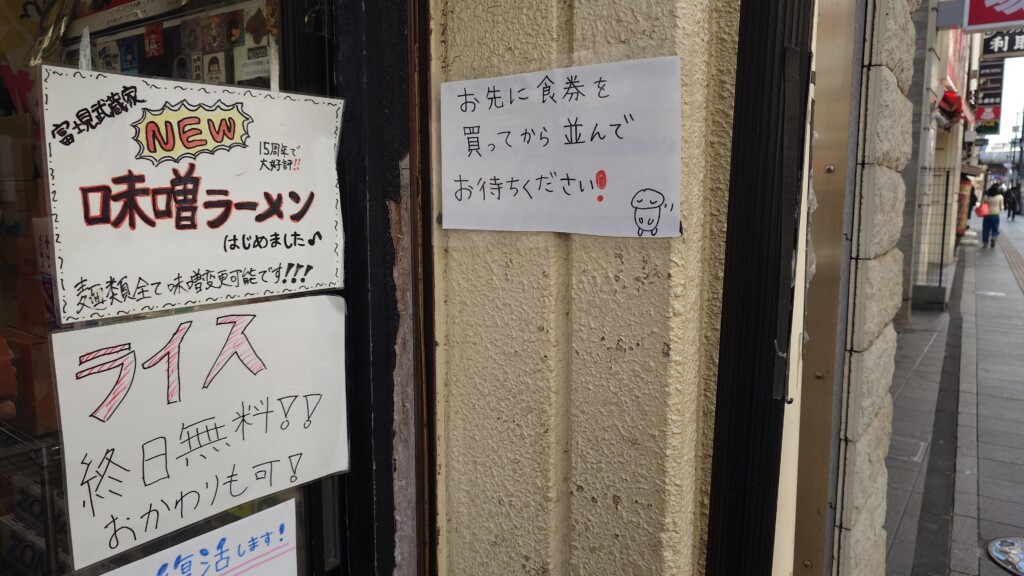 富士見武蔵家
NEW
15周年で
大好評!!
味噌ラーメン
はじめました♪
麺類全て味噌変更可能です!!!
ライス
終日無料!!
おかわりも可!
復活します!
お先に食券を
買ってから並んで
お待ちください!